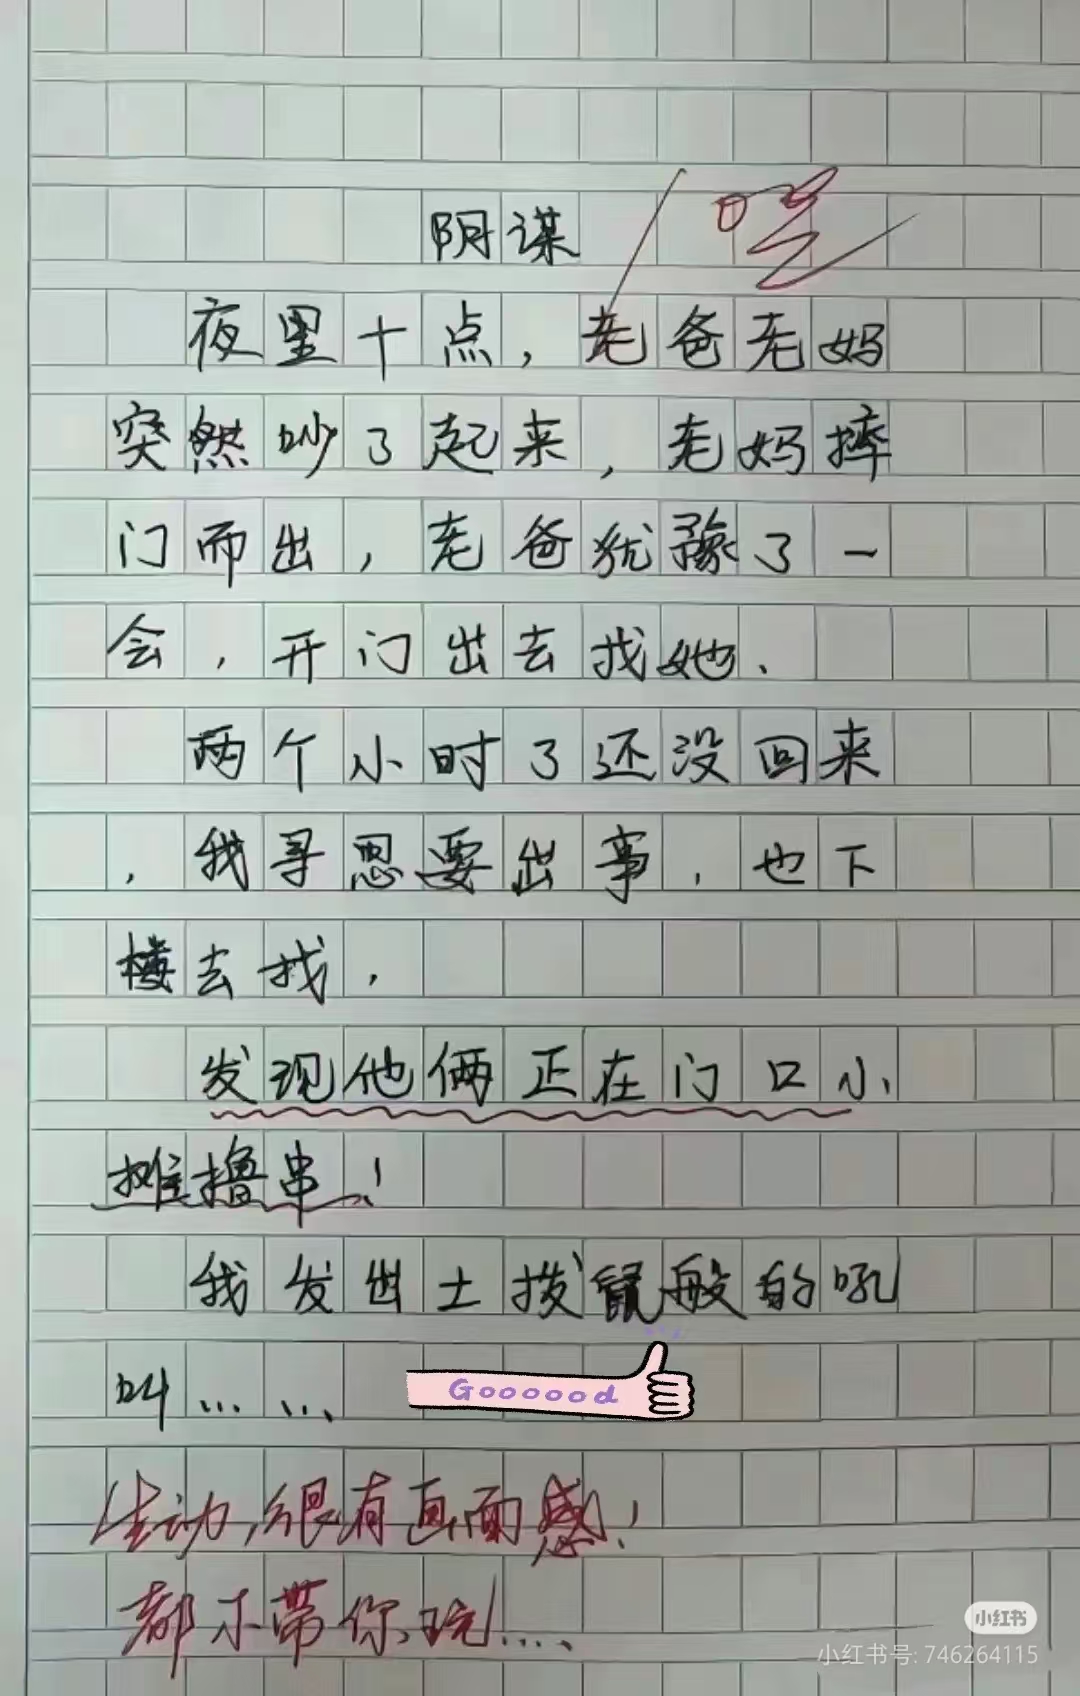 阴谋
夜里十点，老爸老妈
突然吵了起来，老妈摔
门而出，老爸犹豫了一
会，开门出去找她、
两个小时了还没回来
，我寻思要出事，也下
楼去找，
发现他俩正在门口小
摊撸串！
我发出土拨鼠般的吼
叫……
Goooood
生动，很有画面感！
都不带你玩……
小红书
小红书号: 746264115